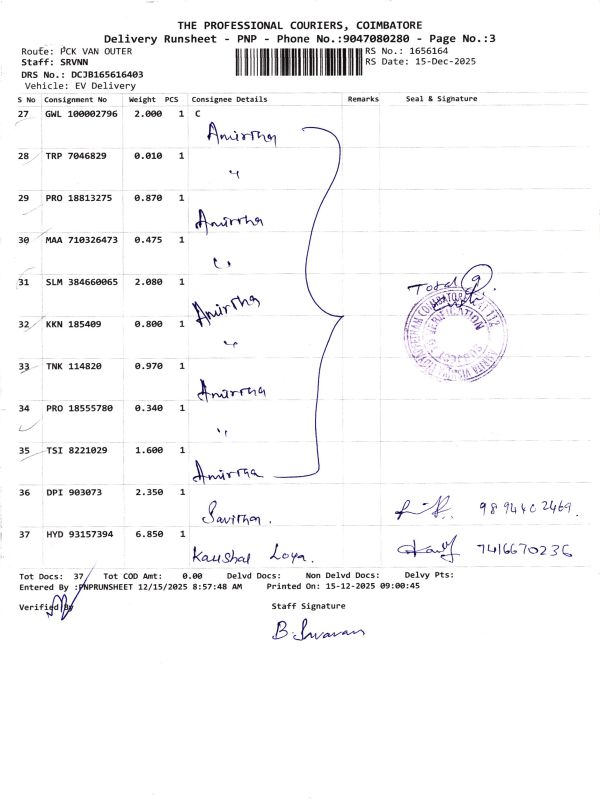 THE PROFESSIONAL COURIERS, COIMBATORE
Delivery Runsheet - PNP - Phone No.:9047080280 - Page No.:3
Route: PCK VAN OUTER
RS No.: 1656164
Staff: SRVNN
RS Date: 15-Dec-2025
DRS No.: DCJB165616403
Vehicle: EV Delivery
S No Consignment No Weight PCS Consignee Details Remarks Seal & Signature
27 GWL 100002796 2.000 1 C
Amirtha
28 TRP 7046829 0.010 1
"
29 PRO 18813275 0.870 1
Amirtha
30 MAA 710326473 0.475 1
"
31 SLM 384660065 2.080 1
Total 9
Amirtha
32 KKN 185409 0.800 1
"
33 TNK 114820 0.970 1
Amirtha
34 PRO 18555780 0.340 1
"
35 TSI 8221029 1.600 1
Amirtha
36 DPI 903073 2.350 1
Savitha. 9894402469.
37 HYD 93157394 6.850 1
Kaushal Loya. 7416670236
Tot Docs: 37 Tot COD Amt: 0.00 Delvd Docs: Non Delvd Docs: Delvy Pts:
Entered By :PNPRUNSHEET 12/15/2025 8:57:48 AM Printed On: 15-12-2025 09:00:45
Verified By
Staff Signature